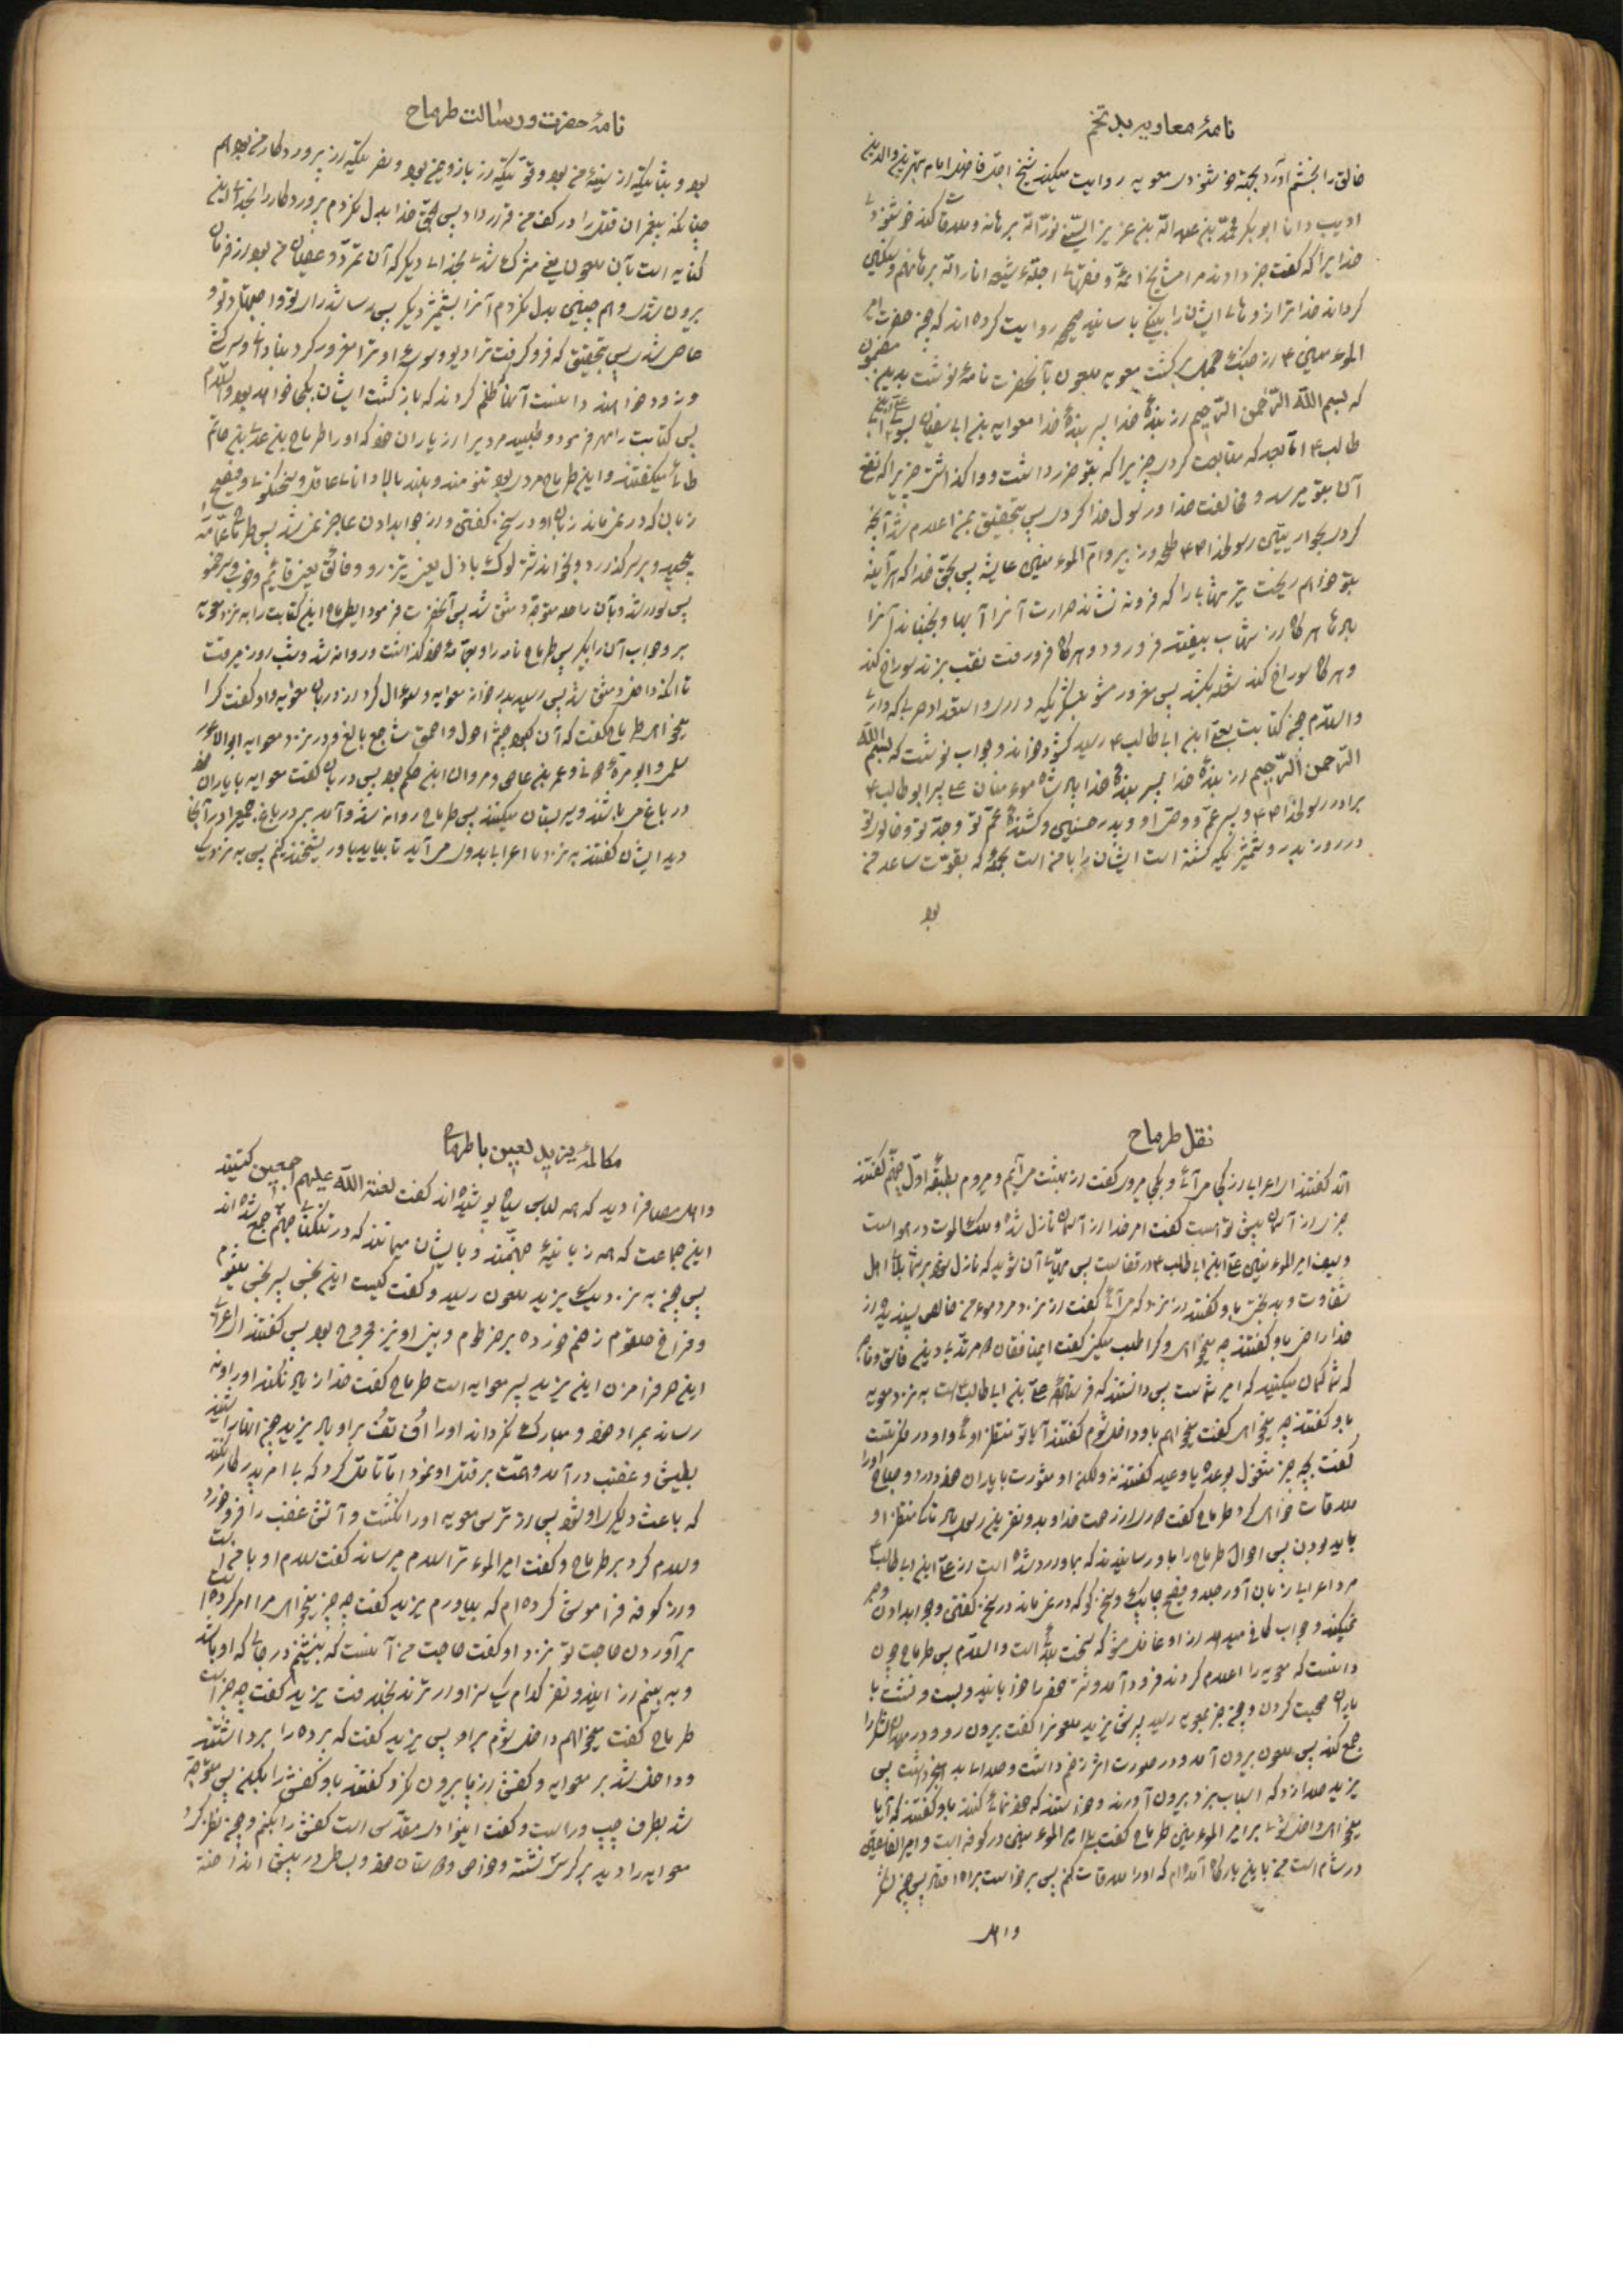 نامهٔ معاویه بد تخم
خالق را بخشم آورد بجهة خوشنودی معویه روایت میکند شیخ اجل فاضل امام
ادیب دانا ابو بکر محمد بن عبد الله بن عزیز
خدا یرا که گفت خبر دادند مرا مشایخ
گرداند خدا ترا از و
المؤمنین ع از جنگ جمل برگشت معویه ملعون بآنحضرت نامهٔ نوشت بدین مضمون
که بسم الله الرحمن الرحیم از بندهٔ خدا پسر بندهٔ خدا معوایه بن ابی سفیان بسوی علی ابن
طالب ع اما بعد که متابعت کردی چیزیرا که بتو ضرر داشت و واگذاشتی چیزیرا که نفع
آن بتو میرسد و مخالفت خدا و رسول خدا کردی پس بتحقیق بمن اعلام شد آنچه
کردی بحواریین رسولخدا ص طلحه و زبیر و ام المؤمنین عایشه پس بحق خدا که هر آینه
بتو خواهم ریخت تیر شهابی را که فرو ننشاند حرارت آنرا آبها و نجنباند آنرا
بادها هر گاه از شهاب بیفتد فرو رود و هر گاه فرو رفت نقب بزند سوراخ کند
و هر گاه سوراخ کند شعله بکشد پس مغرور مشو بلشگریکه داری و استعداد حربی که داری
والسلام چون کتابت بعلی ابن ابی طالب ع رسید گشود و خواند و جواب نوشت که بسم الله
الرحمن الرحیم از بندهٔ خدا پسر بندهٔ خدا پادشاه مومنان علی پسر ابو طالب ع
برادر رسولخدا ص و پسر عم و وصی او و پدر حسنین و کشندهٔ عم تو وجد تو و خالوی تو
در روز بدر و شمشیریکه کشته است ایشان را با من است بجمله که بقوت ساعد من
بود
نامهٔ حضرت و رسالت طرماح
بود و بثباتیکه از سینهٔ من بود و قوتیکه از بازوی من بود و نصرتیکه از پروردگار من بود هم
چنانکه پیغمبران قتل را در کف من قرار داد پس بحق خدا بدل نکردم پروردگار را بخدائی این
کنایه است بآن ملعون یعنی مشرک شدی بخدای دیگر که آن تمرد و عصیان من بود از فرمان
بیرون شدی و هم چنین بدل نکردم آنرا بشمشیر دیگر پس
حاصل شد پس بتحقیق که فرو گرفت ترا دیو و وسوسهٔ او و ترا مغرور کرد بنادانی و سرکشی
و زود خواهند دانست آنها که ظلم کردند که بازگشت ایشان بکجا خواهد بود والسلام
پس کتابت را مهر فرمود و طلبید مردیرا از یاران خود که او را طرماح بن عدی بن حاتم
طائی میگفتند و این طرماح مردی بود تنومند و بلند بالا و دانای عاقل و سخنگوی و فصیح
زبان که در نمیماند زبان او در سخن گفتن و از جوابدادن عاجز نمیشد پس طرماح عمامه
پیچید و بر سر گذارد و بخواند
پس سوار شد و بآن راحله متوجه دمشق شد پس آنحضرت فرمود ایطرماح این کتابت را به نزد معویه
ببر و جواب آن را بگیر پس طرماح نامه را در عمامهٔ خود گذاشت و روانه شد و شب و روز میرفت
تا آنکه داخل دمشق شد پس رسید بدر خانهٔ معوایه و سوال کرد از دربان معوایه و او گفت کرا
میخواهی طرماح گفت که
سلمی و ابو مرة و عمر بن عاص و مروان ابن حکم بود پس دربان گفت معوایه با یاران خود
در باغ میباشند و سیر بستان میکنند پس طرماح روانه شد و آمد بدر باغ جمعی را در آنجا
دید ایشان گفتند به نزد ما اعرابی بدوی می آید تا بیاید با او ریشخند کنیم پس به نزدیک
نقل طرماح
آمد گفتند ای اعرابی از کجا می آئی و بکجا میروی گفت از بهشت می آیم و میروم بطبقهٔ اول جهنم گفتند
خبری از آسمان پیش تو هست گفت امر خدا از آسمان نازل شده و ملک الموت در هوا است
و سیف امیر المؤمنین علی ابن ابی طالب ع در قفا است پس مهیای آن شوید که نازل شود بر شما بلا ای اهل
شقاوت و بدبختی باو گفتند از نزد که می آئی گفت از نزد مرد مومن خالص پسندیده از
خدا راضی باو گفتند چه میخواهی و کرا طلب میکنی گفت این منافقان
که شما گمان میکنید که امیر شماست پس دانستند که فرستادهٔ علی بن ابی طالب ع است به نزد معویه
باو گفتند چه میخواهی گفت میخواهم باو داخل شوم گفتند آیا تو منتظر اوئی و او در فکر تست
گفت بچه چیز مشغول بوعده یا وعید گفتند نه ولکن او مشورت با یاران خود دارد و صباح او را
ملاقات خواهی کرد طرماح گفت
باید بودن پس احوال طرماح را باو رسانیدند که بما وارد شده است از علی ابن ابی طالب ع
مرد اعرابی زبان آور جلد و فصیح چابک و سخن گو که در نمیماند در سخن گفتن و جوابدادن
میکند و جواب کافی میدهد از او غافل مشو که سخت بلائی است والسلام پس طرماح چون
دانست که معویه را اعلام کردند فرود آمد و شتر خود را خوابانید و بست و نشست با
یاران صحبت کردن و چون خبر بمعویه رسید پسرش یزید ملعونرا گفت بیرون رو و در
جمع کند پس ملعون بیرون آمد و در صورت اثر زخم داشت و صدای بدی داشت پس
یزید صدا زد که اسباب یزد بیرون آورند و خواستند که خود نمائی کنند باو گفتند که آیا
میخواهی داخل شوی بر امیر المؤمنین طرماح گفت بلی امیر المؤمنین در کوفه است و امیر الفاسقین
در شام است من باین بارگاه آمده ام که او را ملاقات کنم پس برخواست براه افتاد پس چون نظر
و اهل
مکالمهٔ یزید لعین با طرماح
و اهل مصافرا دید که همه لباس سیاه پوشیده اند گفت لعنة الله علیهم اجمعین کیستند
این جماعت که همه زبانیهٔ جهنمند و بایشان میمانند که در تنگنای جهنم جمع شده اند
پس چون به نزدیک یزید ملعون رسید و گفت کیست این نحس پسر نحس میشوم
و فراخ حلقوم زخم خورده بر خرطوم و بینی او نیز مجروح بود پس گفتند ای اعرابی
این حرف مزن این یزید پسر معوایه است طرماح گفت خدا زیاد نکند او را و نه
رساند بمراد خود و مبارک نگرداند او را اف تف براو باد یزید چون اینها را شنید
بطیش و غضب در آمد و همت بر قتل او نمود اما تأمل کرد که بی امر پدر کار نکند
که باعث دلگیری او شود پس از ترس معویه او را نکشت و آتش غضب را فرو خورد
و سلام کرد بر طرماح و گفت امیر المؤمن ترا سلام میرساند گفت سلام او با من است
و از کوفه فراموش کرده ام که بیاورم یزید گفت چه چیز میخواهی مرا امر کرده است
برآوردن حاجت تو نزد او گفت حاجت من آنست که بنشینم در جائی که او باشد
و به بینم از ایندو نفر کدام یک سزاوارترند بخلافت یزید گفت چه چیز است
طرماح گفت میخواهم داخل شوم بر او پس یزید گفت که پرده را برداشتند
و داخل شد بر معوایه و کفش از پا بیرون نکرد گفتند باو کفش را بکن پس متوجه
شد بطرف چپ و راست و گفت اینوادی مقدس است کفش را بکنم و چون نظر کرد
معوایه را دید بر کرسی نشسته و خواص و دوستان خود و بساطی در پیش انداخته